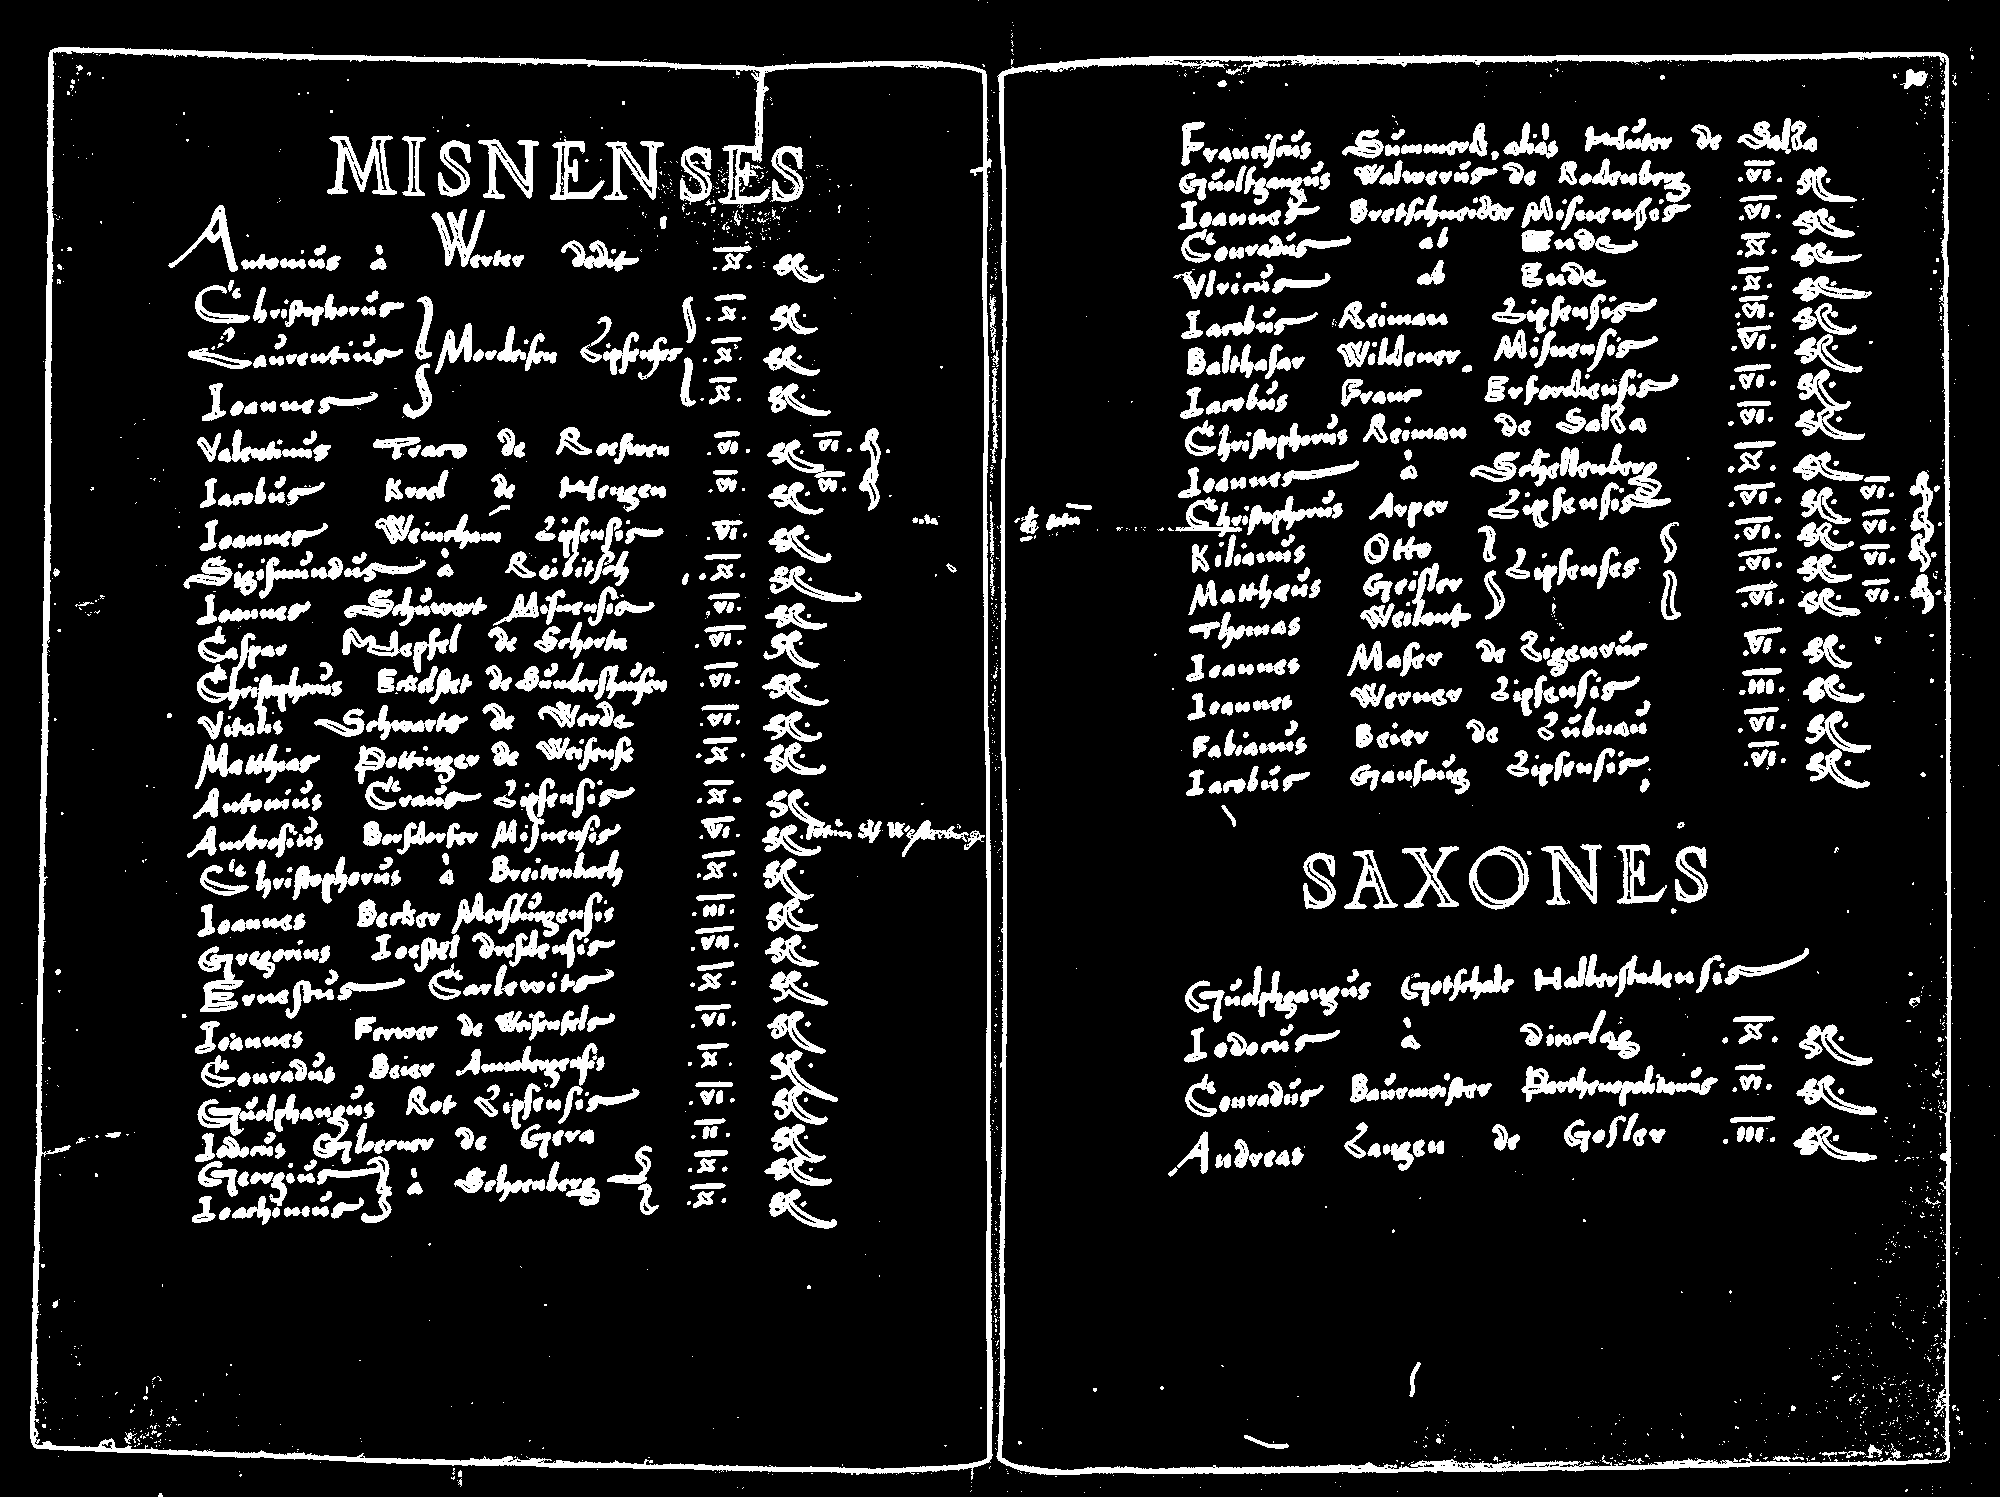 MISNENSES
Antonius à Werter dedit .X. gℓ.
Christophorus .X. gℓ.
Laurentius Mordeisen Lipsenses .X. gℓ.
Ioannes .X. gℓ.
Valentinus de .VI. gℓ. VI. ₰.
Iacobus de .VI. gℓ. VI. ₰.
Ioannes Lipsensis .VI. gℓ.
Sigismundus à .X. gℓ.
Ioannes Schuwert Misnensis .VI. gℓ.
Caspar de .VI. gℓ.
Christophorus de Sundershausen .VI. gℓ.
Vitalis Schwarts de Werde .VI. gℓ.
Matthias Pottinger de Weisense .X. gℓ.
Antonius Craus Lipsensis .X. gℓ.
Ambrosius Borsdorfer Misnensis .VI. gℓ.
Christophorus à Breitenbach .X. gℓ.
Ioannes Becker Mersburgensis .III. gℓ.
Gregorius Ioestel dresdensis .VII. gℓ.
Ernestus Carlewits .X. gℓ.
Ioannes Ferwer de Weisenfels .VI. gℓ.
Conradus Beier Annabergensis .X. gℓ.
Guolphangus Rot Lipsensis .VI. gℓ.
Iodocus de Gera .II. gℓ.
Georgius à Schoenberg .X. gℓ.
Ioachimus .X. gℓ.
Franciscus Summerel, alias de Salza
Guolfgangus Walwerus de Rodenberg .VI. gℓ.
Ioannes Bretschneider Misnensis .VI. gℓ.
Conradus ab Ende .X. gℓ.
Vlricus ab Ende .X. gℓ.
Iacobus Reiman Lipsensis .VI. gℓ.
Balthasar Wildener Misnensis .VI. gℓ.
Iacobus Franc Erfordiensis .VI. gℓ.
Christophorus Reiman de Salza .VI. gℓ.
Ioannes à Schellenberg .X. gℓ.
Christophorus Arper Lipsensis .VI. gℓ. VI. ₰.
Kilianus Otto .VI. gℓ. VI. ₰.
Matthæus Geisler Lipsenses .VI. gℓ. VI. ₰.
Thomas Weilant .VI. gℓ. VI. ₰.
Ioannes Maser de Zigenrus .VI. gℓ.
Ioannes Werner Lipsensis .III. gℓ.
Fabianus Beier de .VI. gℓ.
Iacobus Gansaug Lipsensis .VI. gℓ.
SAXONES
Guolphgangus Gotschalc Halberstadensis
Iodocus à dinclag .X. gℓ.
Conradus Baurmeister Parthenopolitanus .VI. gℓ.
Andreas Langen de Gosler .III. gℓ.